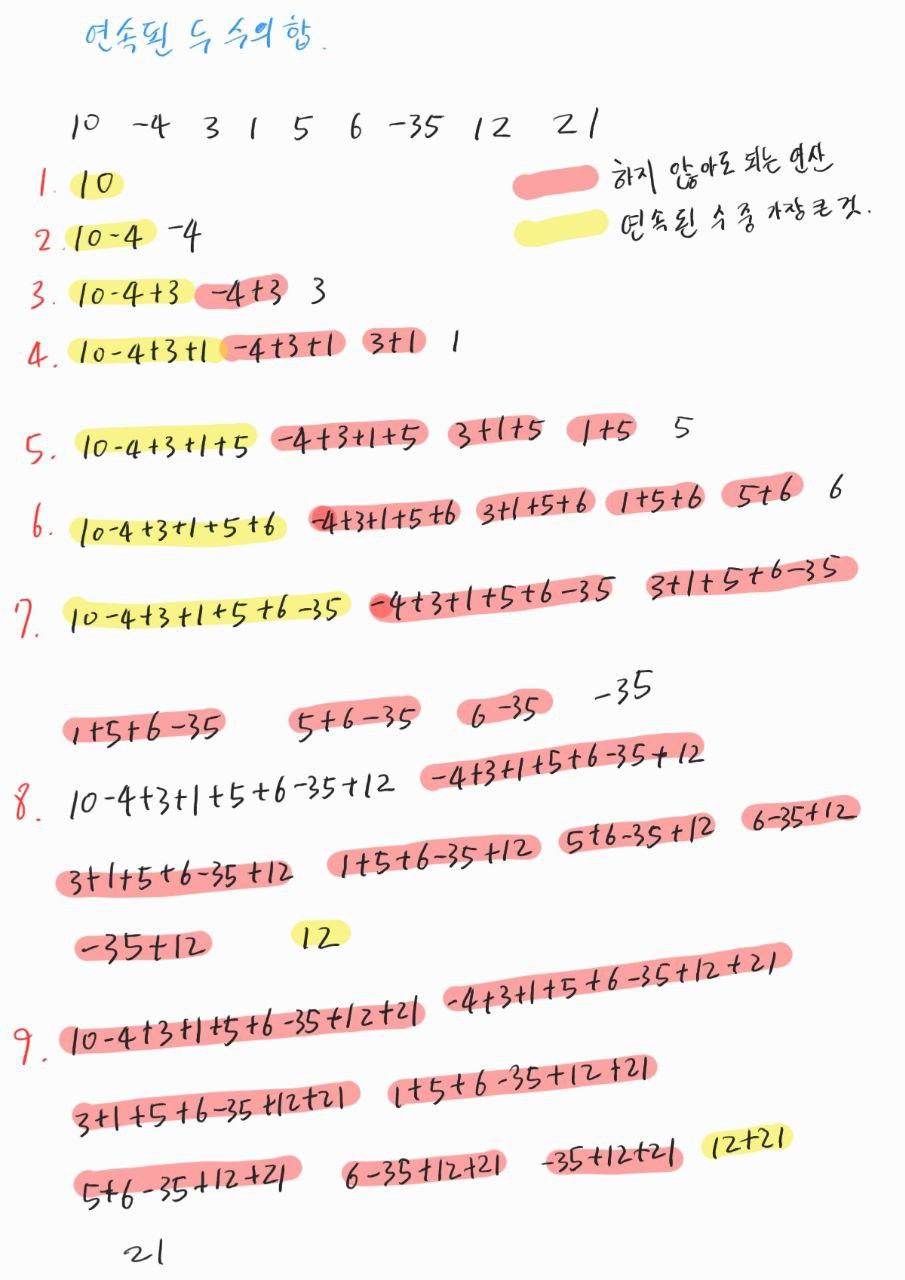 연속된 두 수의 합.
10 -4 3 1 5 6 -35 12 21
하지 않아도 되는 연산
연속된 수 중 가장 큰 것.
1. 10
2. 10-4 -4
3. 10-4+3 -4+3 3
4. 10-4+3+1 -4+3+1 3+1 1
5. 10-4+3+1+5 -4+3+1+5 3+1+5 1+5 5
6. 10-4+3+1+5+6 -4+3+1+5+6 3+1+5+6 1+5+6 5+6 6
7. 10-4+3+1+5+6-35 -4+3+1+5+6-35 3+1+5+6-35
1+5+6-35 5+6-35 6-35 -35
8. 10-4+3+1+5+6-35+12 -4+3+1+5+6-35+12
3+1+5+6-35+12 1+5+6-35+12 5+6-35+12 6-35+12
-35+12 12
9. 10-4+3+1+5+6-35+12+21 -4+3+1+5+6-35+12+21
3+1+5+6-35+12+21 1+5+6-35+12+21
5+6-35+12+21 6-35+12+21 -35+12+21 12+21
21